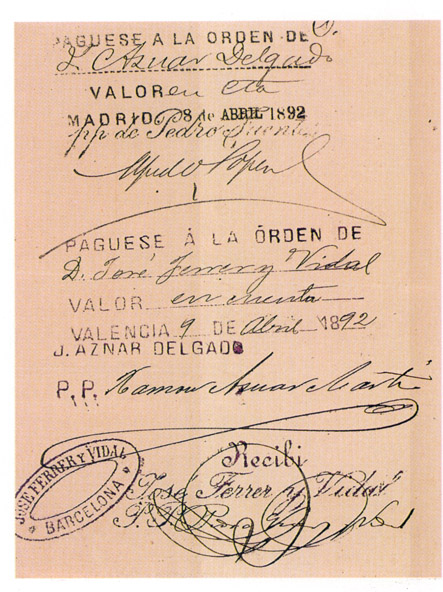 PAGUESE A LA ORDEN DE D.
J. Aznar Delgado
VALOR en cta
MADRID 8 de ABRIL 1892
pp de Pedro Fuentes
Alfredo López
PAGUESE Á LA ÓRDEN DE
D. José Ferrer y Vidal
VALOR en cuenta
VALENCIA 9 DE Abril 1892
J. AZNAR DELGADO
P. P. Ramon Aznar Martí
Recibi
José Ferrer y Vidal
P. P.
JOSÉ FERRER Y VIDAL
BARCELONA